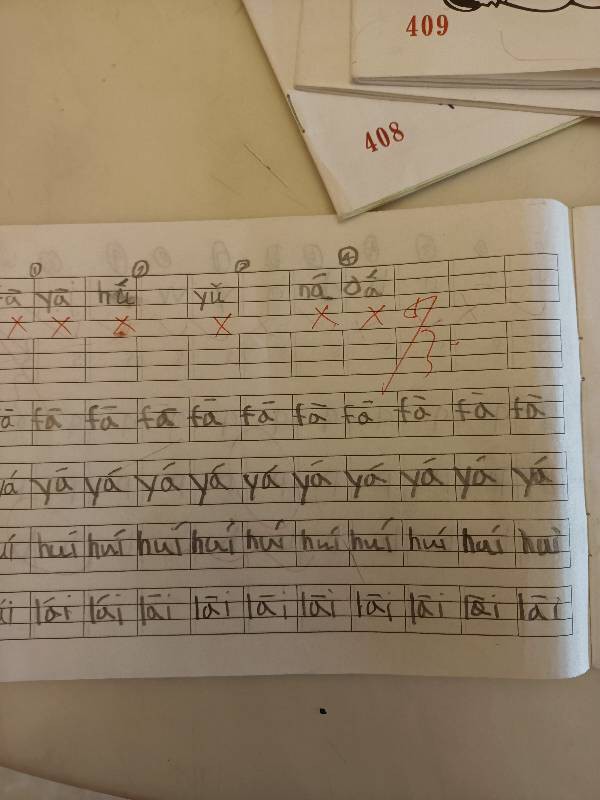 409
408
① ② ③ ④
yā hú yǔ ná dá
fā fā fā fā fā fā fā fā fā fā
yá yá yá yá yá yá yá yá yá yá yá
huí huí huí huí huí huí huí huí huí huí
lái lái lāi lāi lāi lāi lāi lāi lāi lāi